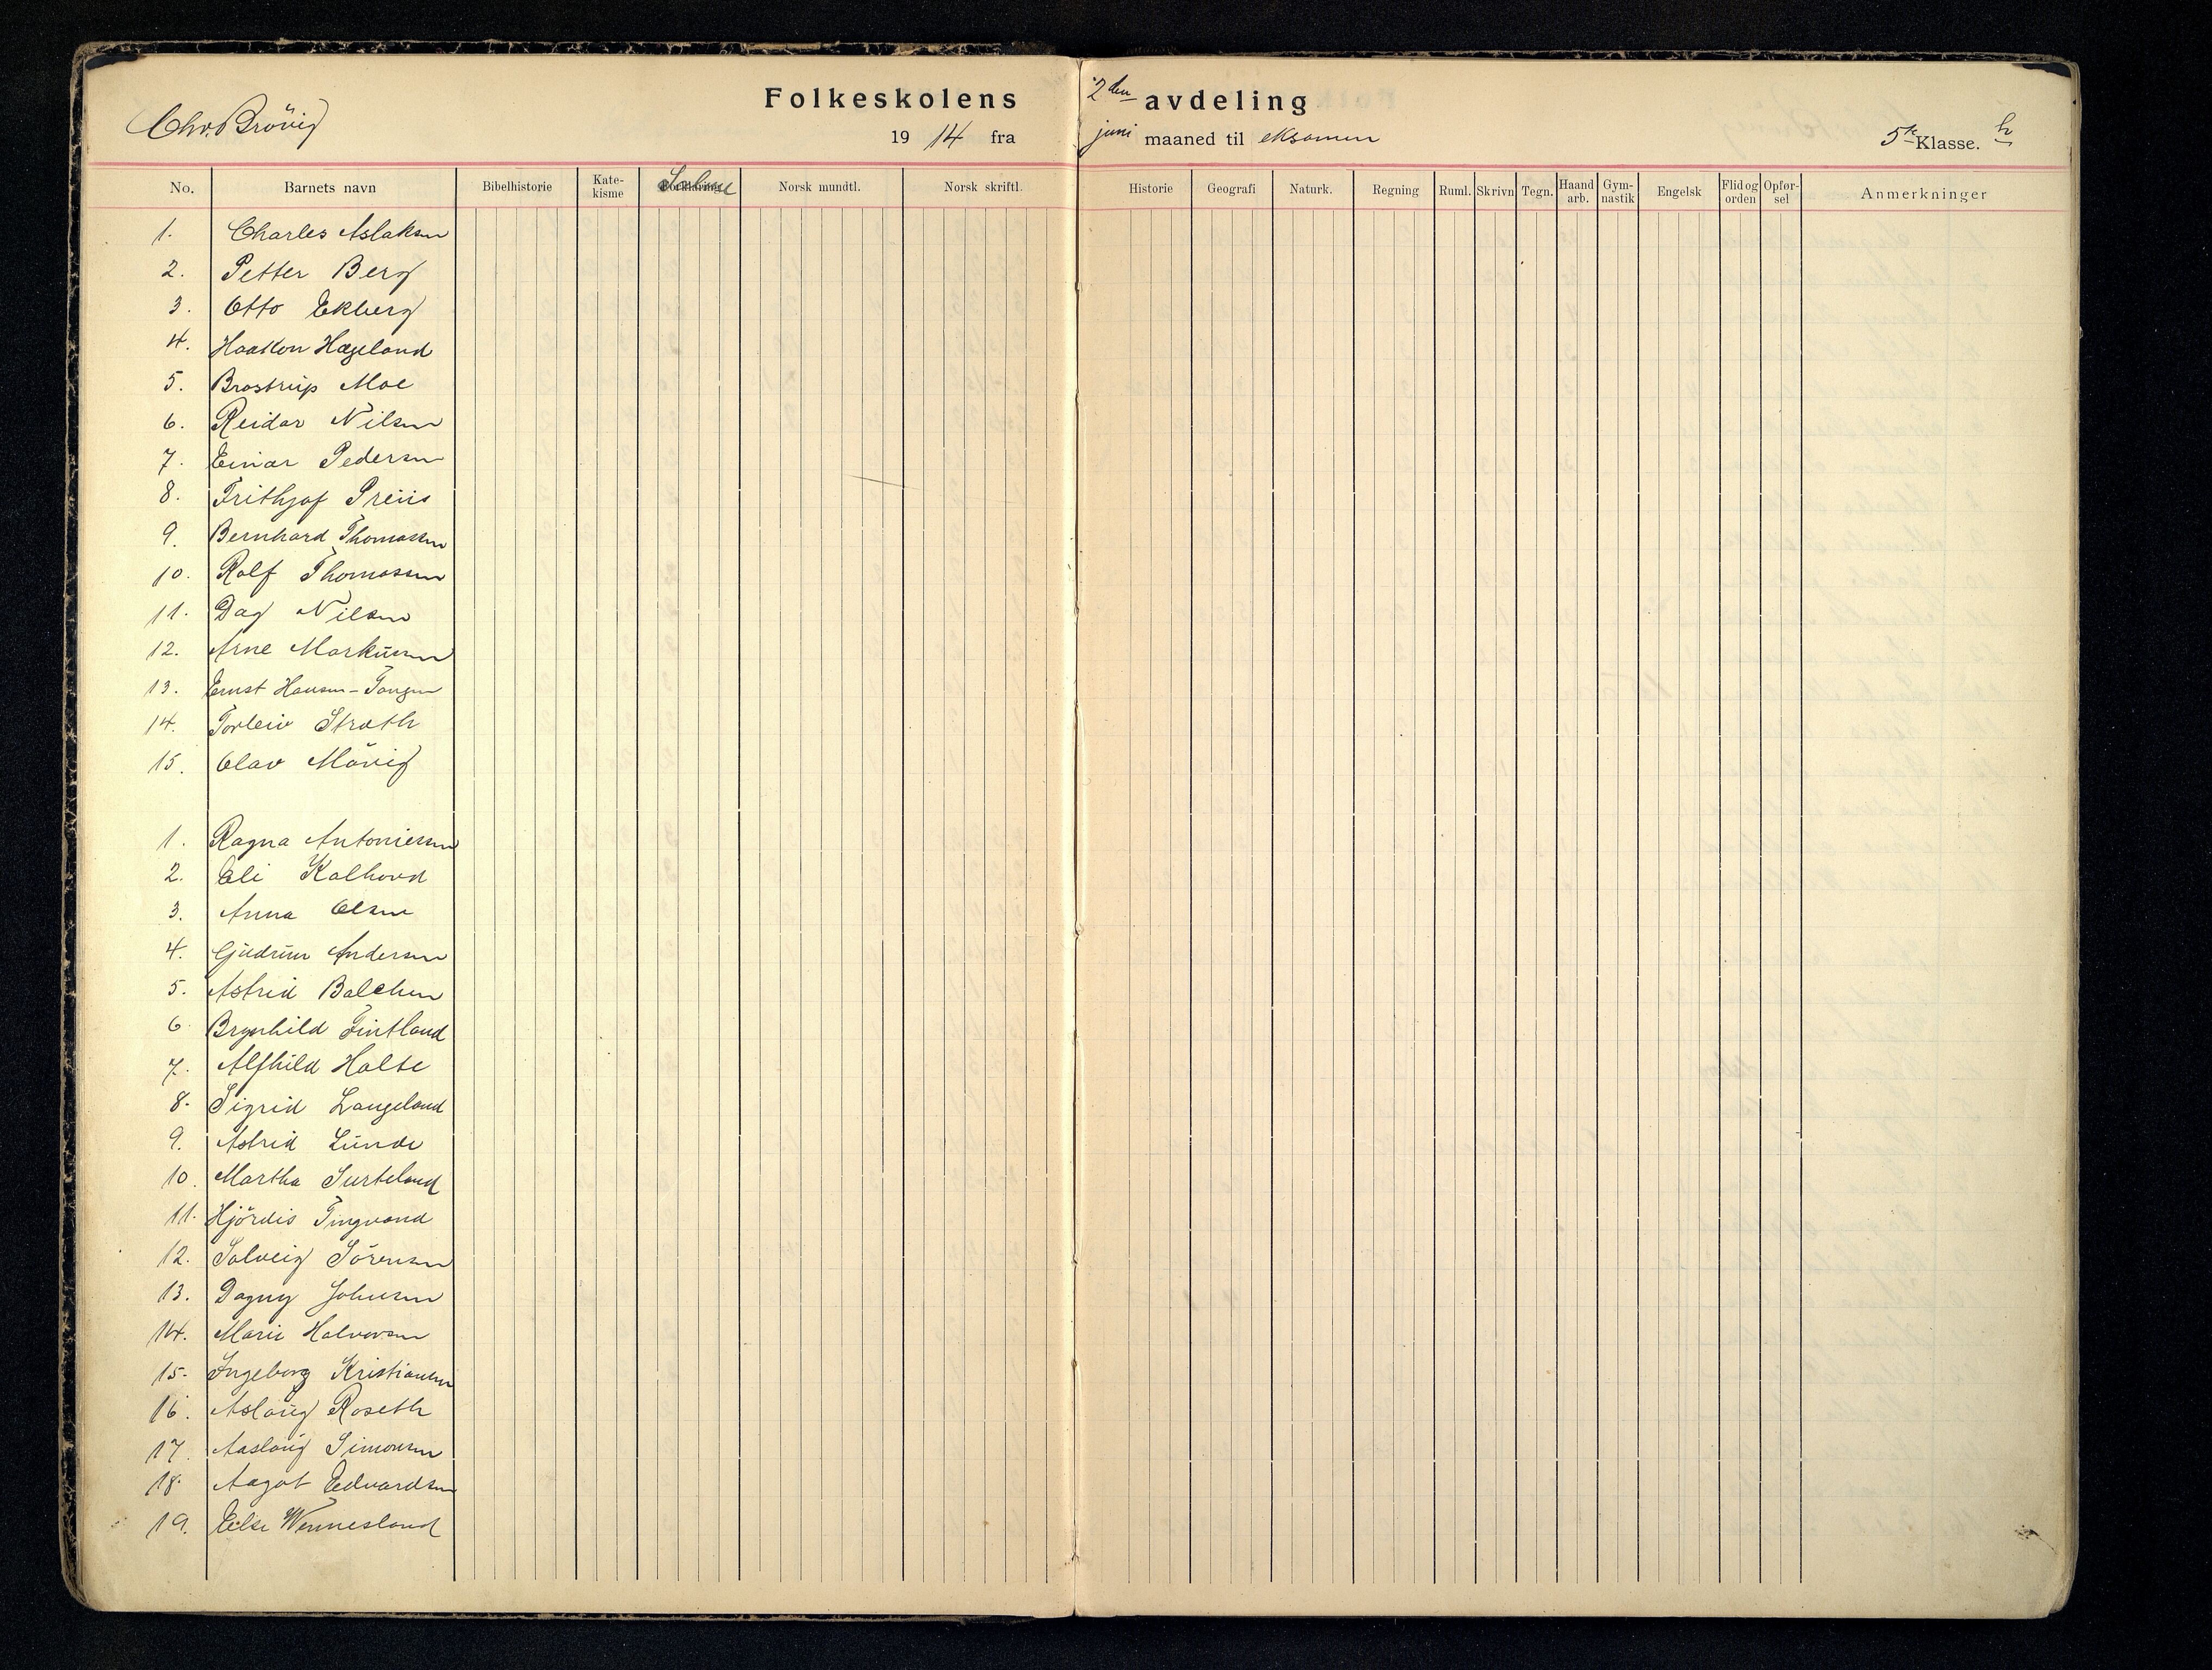 Chr. Brövig
Folkeskolens 2den avdeling
1914 fra juni maaned til eksamen
5te Klasse. b
No. Barnets navn Bibelhistorie Kate-kisme Salme Norsk mundtl. Norsk skriftl. Historie Geografi Naturk. Regning Ruml. Skrivn Tegn. Haand arb. Gym-nastik Engelsk Flid og orden Opfør-sel Anmerkninger
1. Charles Aslaksen
2. Petter Berg
3. Otto Ekberg
4. Haakon Hægeland
5. Brostrup Moe
6. Reidar Nilsen
7. Einar Pedersen
8. Frithjof Preüs
9. Bernhard Thomassen
10. Rolf Thomassen
11. Dag Nilsen
12. Arne Markussen
13. Ernst Hansen-Tangen
14. Torleiv Strøth
15. Olav Mövig
1. Ragna Antoniesen
2. Eli Kalhovd
3. Anna Olsen
4. Gjüdrün Andersen
5. Astrid Balchen
6. Brynhild Fintland
7. Alfhild Holte
8. Sigrid Langeland
9. Astrid Lünde
10. Martha Surteland
11. Hjördis Tingvand
12. Solveig Sörensen
13. Dagny Johnsen
14. Marie Halvorsen
15. Ingeborg Kristiansen
16. Aslaüg Roseth
17. Aaslaüg Simonsen
18. Aagot Edvardsen
19. Else Wennesland